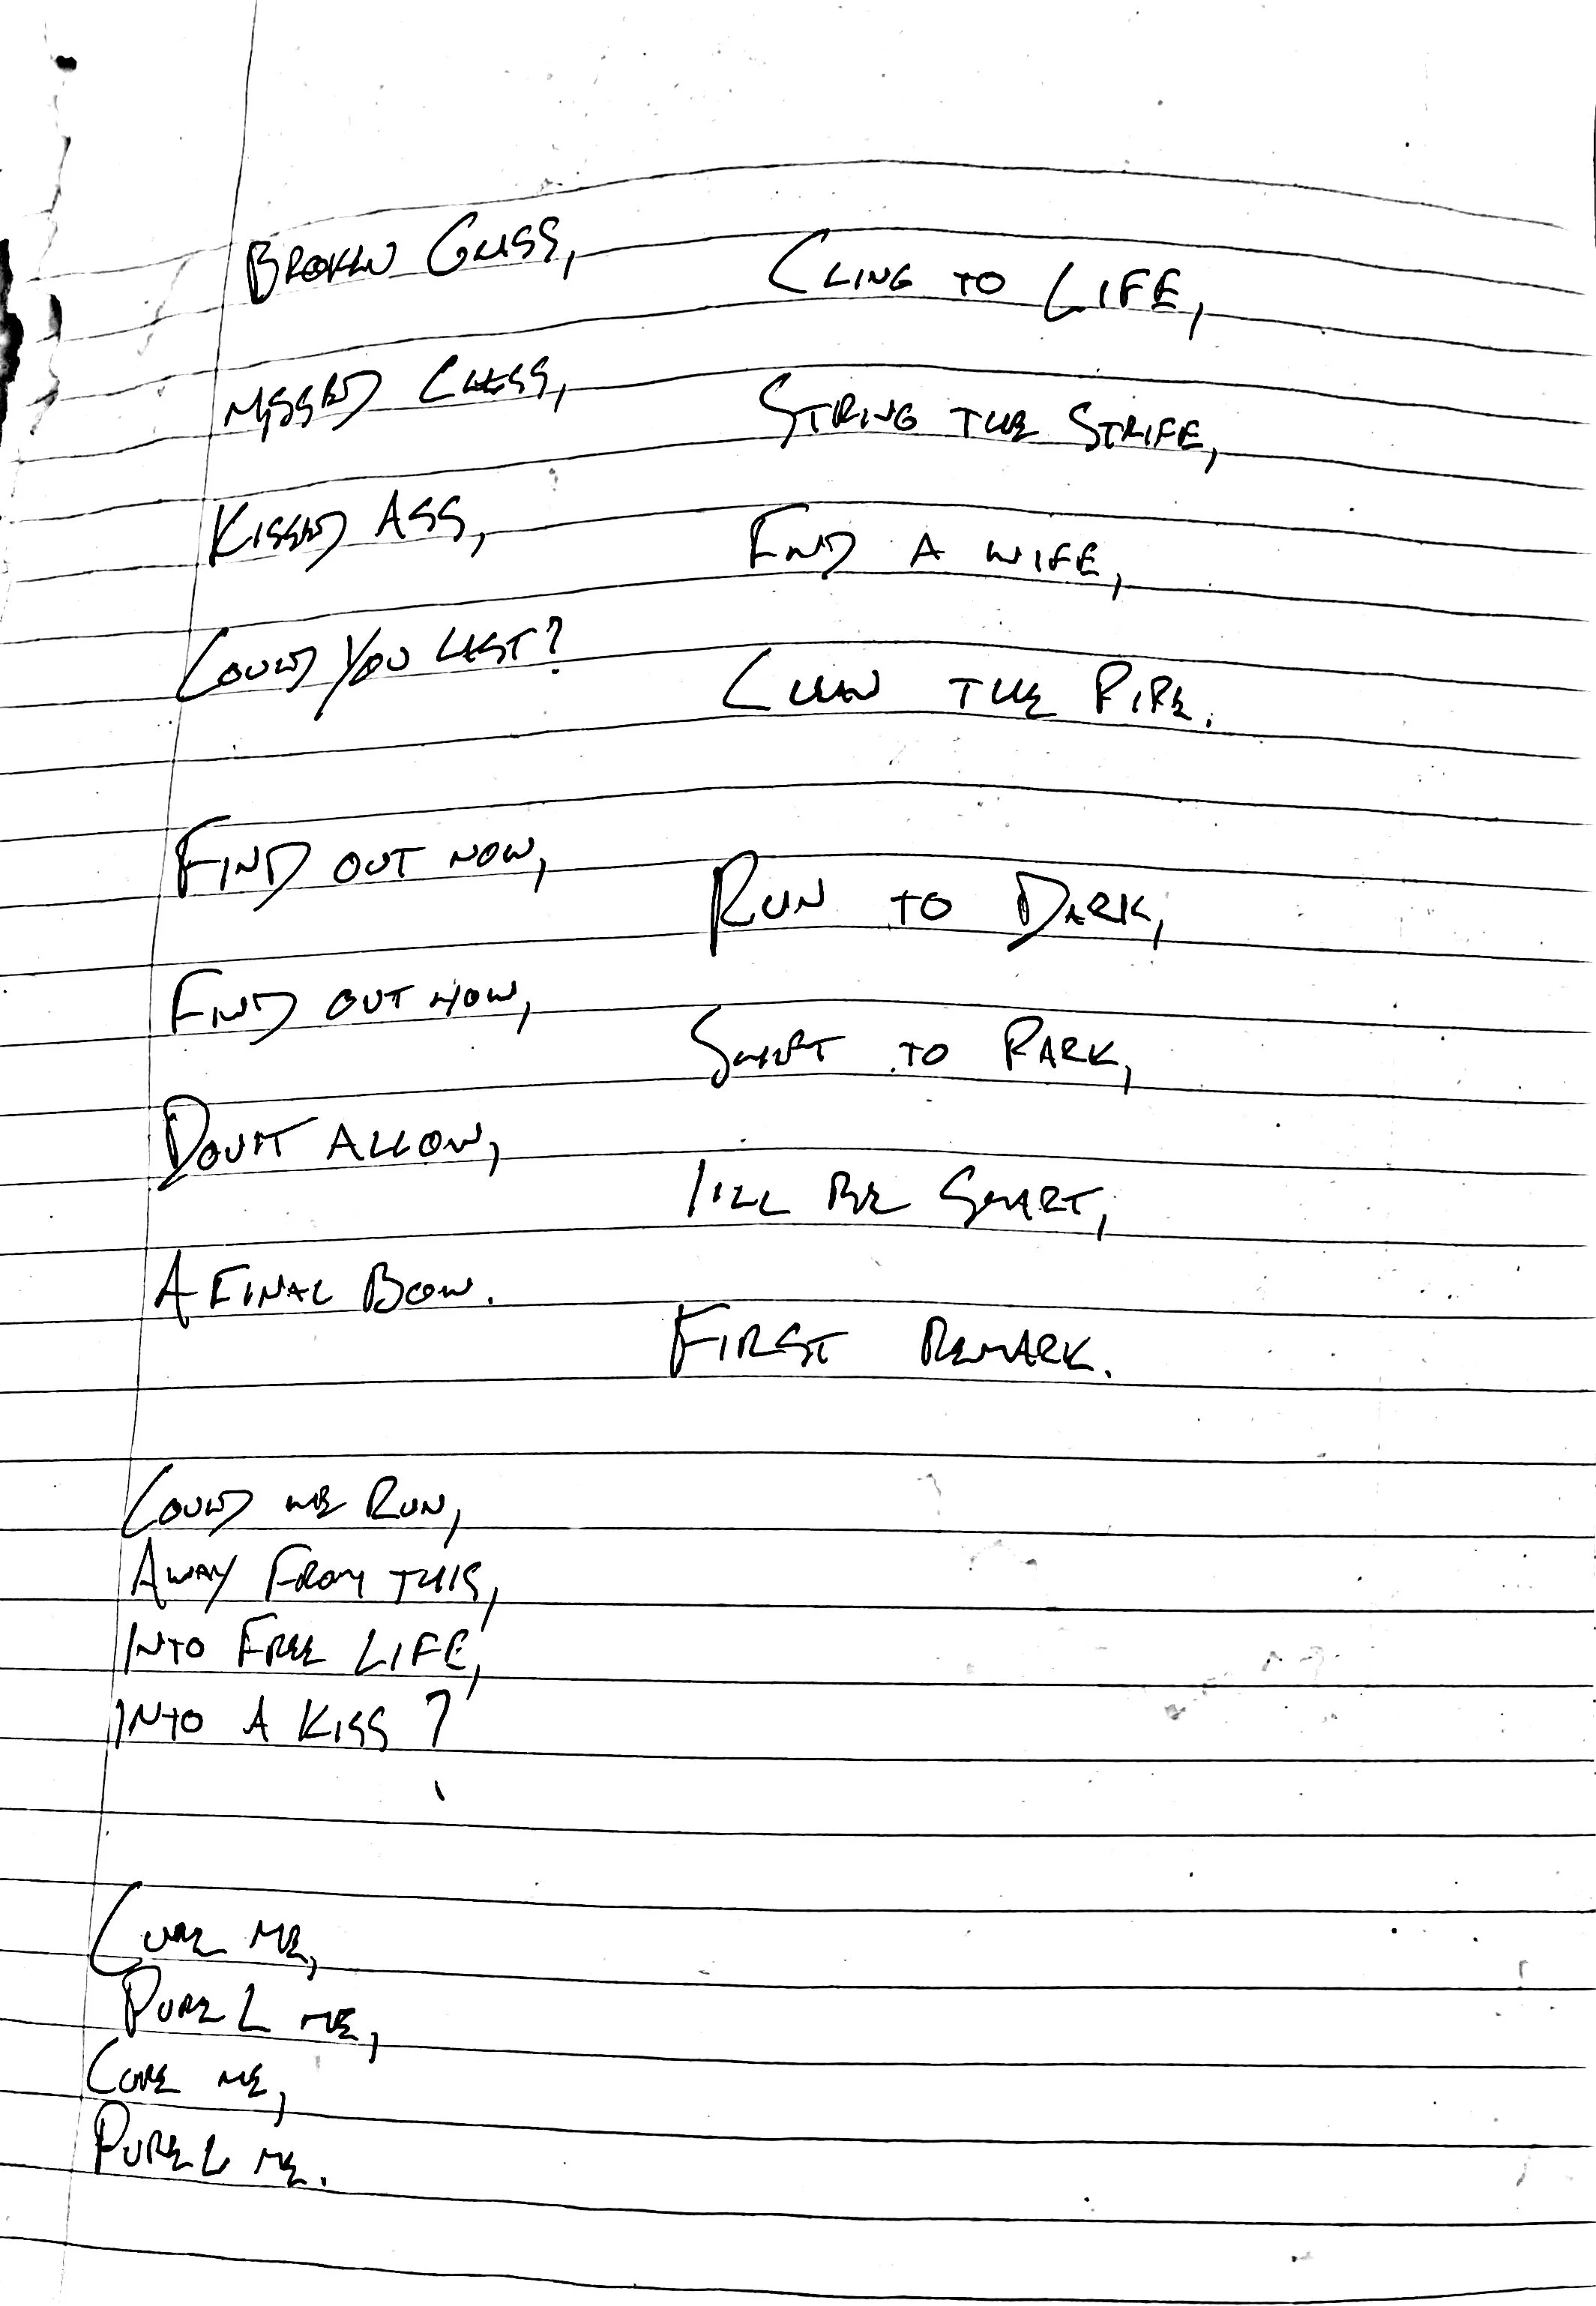 BROKEN GLASS,
MISSED CLASS,
KISSED ASS,
COULD YOU LAST?
FIND OUT NOW,
FIND OUT NOW,
DON'T ALLOW,
A FINAL BOW.
COULD WE RUN,
AWAY FROM THIS,
INTO FREE LIFE,
INTO A KISS?
CURE ME,
PUREL ME,
CURE ME,
PUREL ME.
CLING TO LIFE,
STRING THE STRIFE,
FIND A WIFE,
CLEAN THE PIPE.
RUN TO DARK,
SHIFT TO PARK,
I'LL BE SMART,
FIRST REMARK.